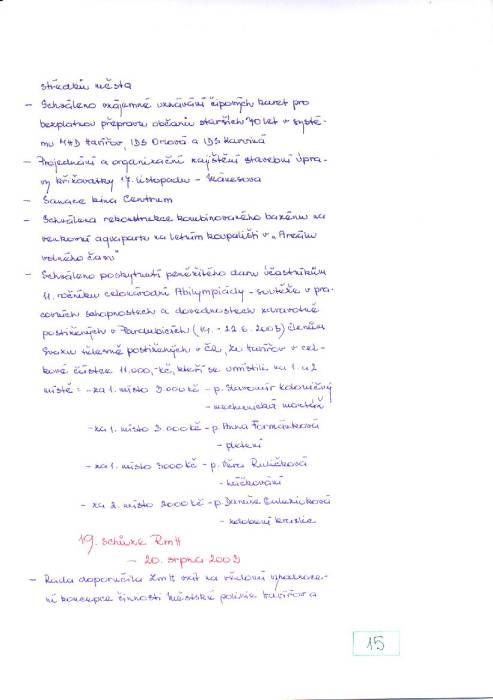 středků města
- Schváleno vzájemné uznávání čipových karet pro
bezplatnou přepravu občanů starších 70 let v systé-
mu MHD Havířov, IDS Orlová a IDS Karviná
- Projednání a organizační zajištění stavební úpra-
vy křižovatky 17. listopadu - Mánesova
- Sanace kina Centrum
- Schválena rekonstrukce kombinovaného bazénu na
venkovní aquapark na letním koupališti v "Areálu
volného času"
- Schváleno poskytnutí peněžitého daru účastníkům
11. ročníku celonárodní Abilympiády - soutěže v pra-
covních schopnostech a dovednostech zdravotně
postižených v Pardubicích (19. - 22. 6. 2003) členům
Svazu tělesně postižených v ČR, ZO Havířov v cel-
kové částce 11.000,- Kč, kteří se umístili na 1. a 2
místě: - za 1. místo 3.000 Kč - p. Slavomír
- mechanická montáž
- za 1. místo 3.000 Kč - p. Anna Formánková
- pletení
- za 1. místo 3000 Kč - p. Věra Ruličková
- háčkování
- za 2. místo 2000 Kč - p. Danuše
- zdobení kraslic
19. schůze RmH
- 20. srpna 2003
- Rada doporučila ZmH vzít na vědomí vyhodnoce-
ní koncepce činnosti Městské policie Havířov a
15